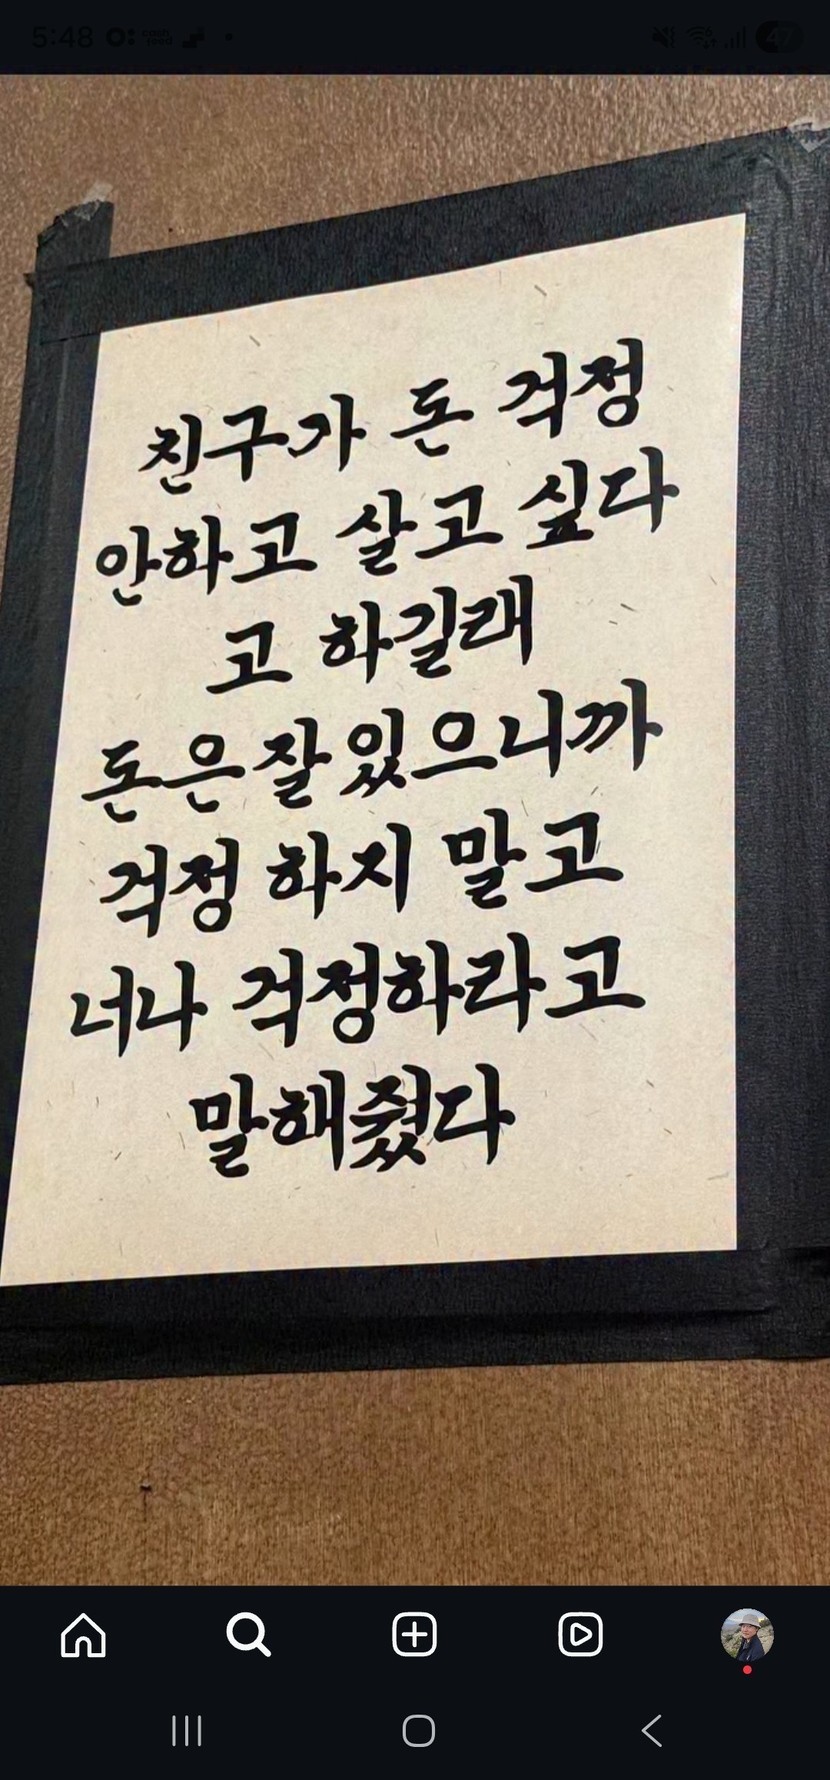 5:48
친구가 돈 걱정
안하고 살고 싶다
고 하길래
돈은 잘 있으니까
걱정 하지 말고
너나 걱정하라고
말해줬다